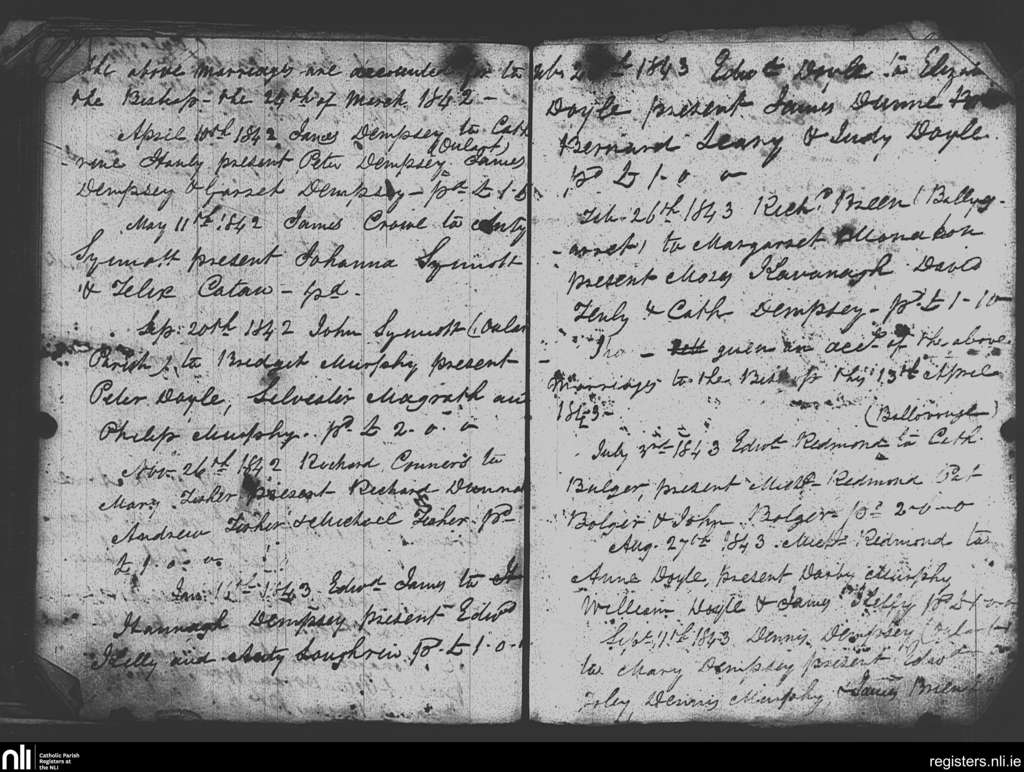 The above marriages are accounted for to
the Bishop - the 24th of March 1842 -
April 10th 1842 James Dempsey to Cath
(Oulart)
rine Hanly present Peter Dempsey James
Dempsey & Garret Dempsey - pd £ 1-
May 11th 1842 James Crowe to Anty
Synnott present Johanna Synnott
& Felix Catan - pd.
Sep: 20th 1842 John Synnott (Oular
Parish) to Bridget Murphy present
Peter Doyle, Silvester Magrath an
Philip Murphy. pd £ 2-0-0
Nov- 26th 1842 Richard Connors to
Mary Fisher present Richard
Andrew Fisher & Michael Fisher. pd
£ 1-0-0
Jan: 1843 Edwd James to
Hannagh Dempsey present Edwd
Kelly and Anty Loughren pd £ 1-0-
1843 Edwd Doyle to Eliza
Doyle present James Dunne
Bernard Leary & Judy Doyle
pd £ 1-0-0
Feb- 26th 1843 Richd Breen (Ballyg-
-arret) to Margaret
present Moses Kavanagh David
& Cath Dempsey - pd £ 1-10
given an acct of the above
marriages to the Bishop this 13th April
1843-
July 3rd 1843 Edwd Redmond to Cath.
Bulger, present Michl Redmond Pat
Bolger & John Bolger pd 2-0-0
Aug. 27th 1843. Michl Redmond to
Anne Doyle, present Darby Murphy
William Doyle & James Kelly pd £ 1-0-0
Sept. 1843 Dennis Dempsey (Oulart)
to Mary Dempsey present Edwd
Foley Dennis Murphy & James
nli
Catholic Parish
Registers at
the NLI
registers.nli.ie